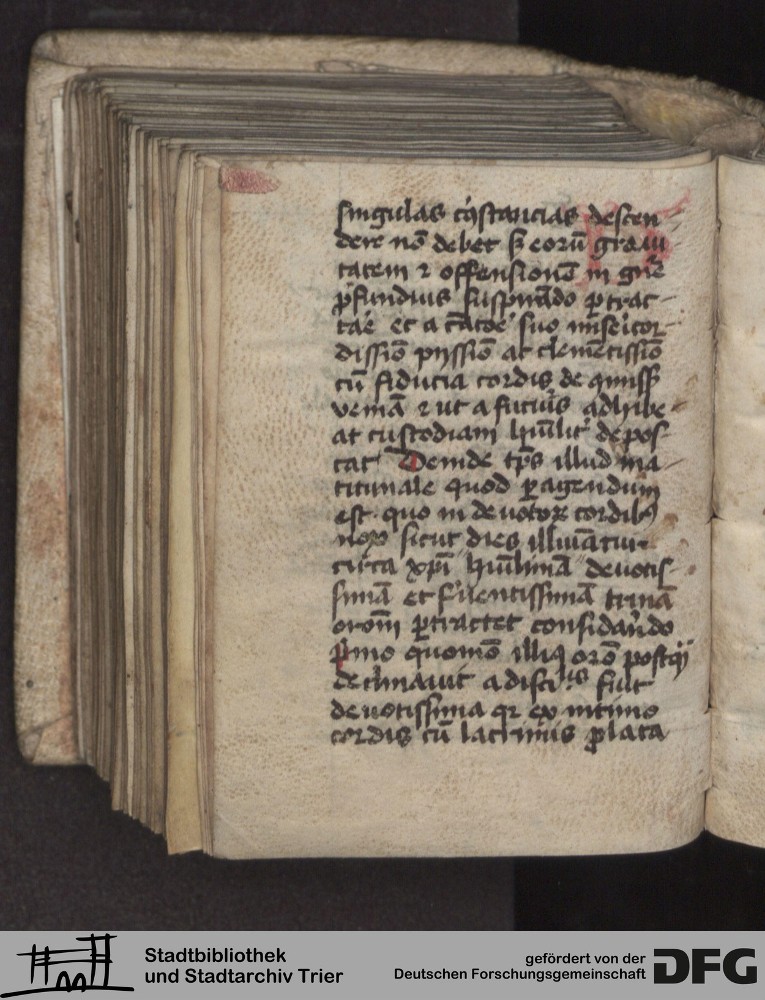 singulas cÿstancias descen
dere nō debet ß eorū graui
tatem ⁊ offensionē in gn̄e
ꝓfundius suspirādo ꝑtrac
tāe et a c̄atoē suo miſeꝛicor
dissiō pijssiō ac clemētissiō
cū fiducia cordis de ꝯmiss
veniā ⁊ ut a futuris adhibe
at custodiam hūilit̄ depos
cat Deinde tp̄s illud ma
tutinale quod ꝑagendum
est quo in deuotoꝝ cordibꝰ
nox sicut dies illuīatur
circa xp̄i hūilimā deuotis
simā et feruentissimā trinā
orōm ꝑtractet confidādo
p̄mo quomō illiꝰ orō postqᷓ
declinauit a disci.lis fiūt
deuotissima qꝛ ex intimo
cordis cū lacrimis ꝓlata
Stadtbibliothek
und Stadtarchiv Trier
gefördert von der
Deutschen Forschungsgemeinschaft
DFG